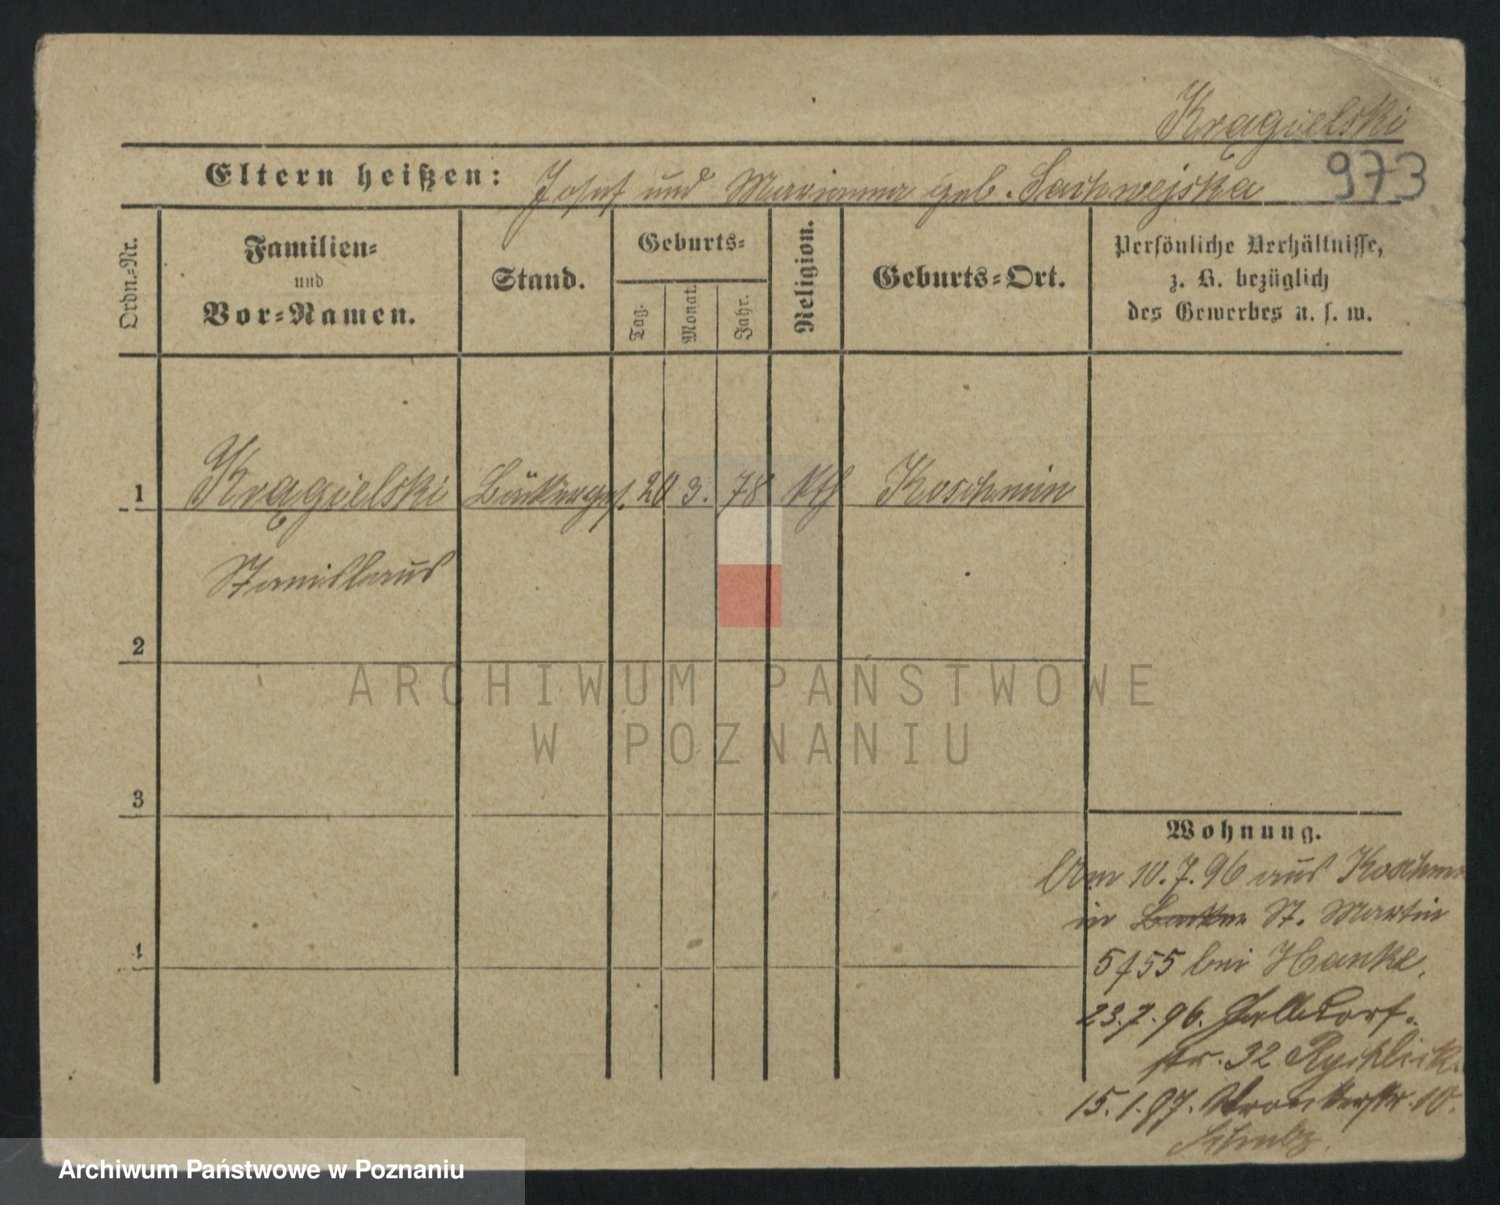 Krągielski
Eltern heißen: Josef und Marianna geb. Sachwejska
973
Ordn.=Nr.
Familien=
und
Vor=Namen.
Stand.
Geburts=
Tag.
Monat.
Jahr.
Religion.
Geburts=Ort.
Persönliche Verhältnisse,
z. B. bezüglich
des Gewerbes u. s. w.
1 Krągielski Bäckerges. 20 3. 78 kth Koschmin
Stanislaus
2
3
4
Wohnung.
Am 10.7.96 aus Koschmin
in St. Martin
55 bei Hanke.
23.7.96. Halldorf-
str. 32 Rychlick.
15.1.97. Wronkerstr. 10.
Schulz.
ARCHIWUM PAŃSTWOWE
W POZNANIU
Archiwum Państwowe w Poznaniu